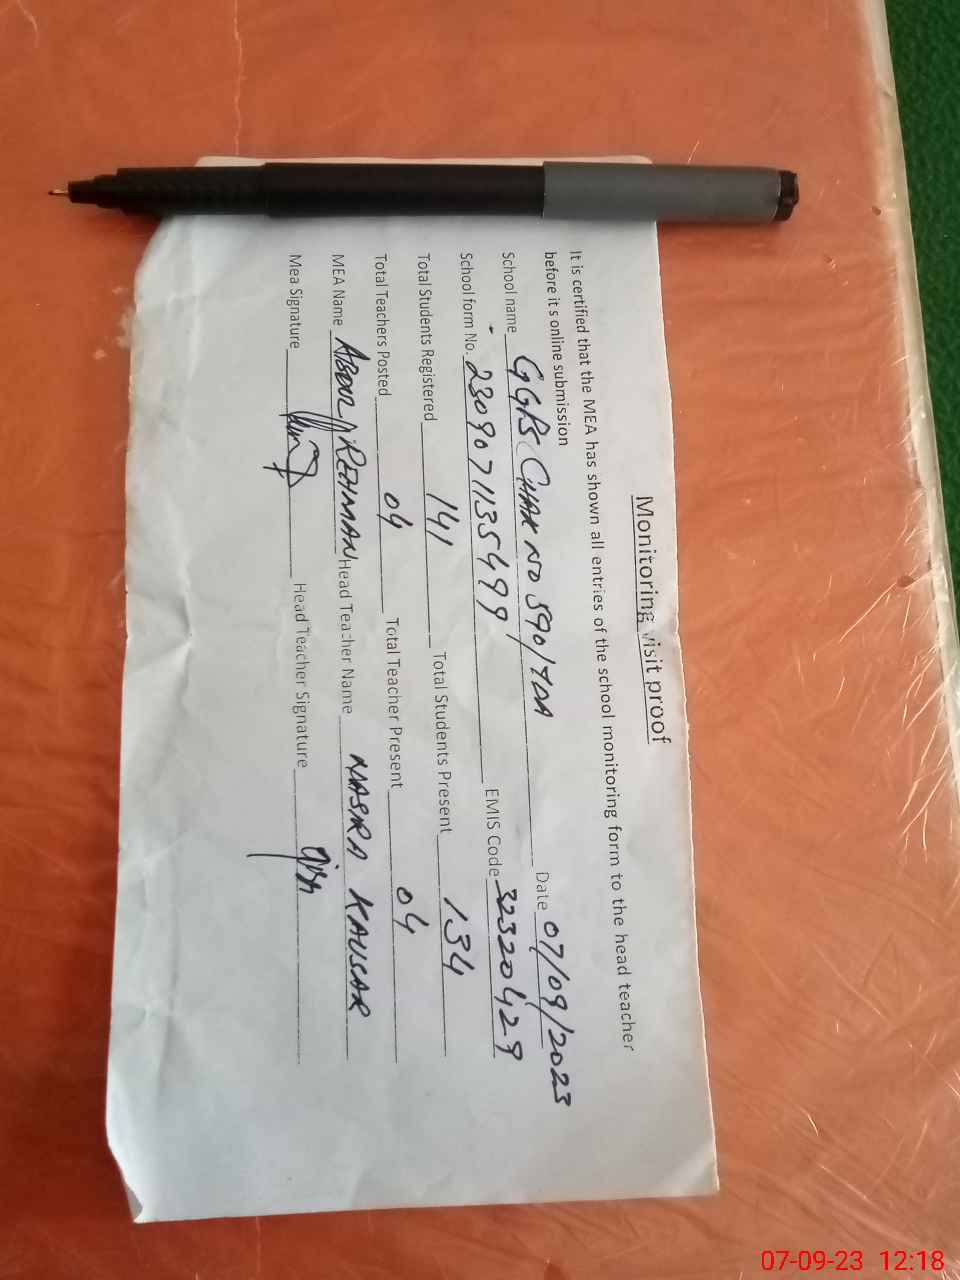 Monitoring visit proof
It is certified that the MEA has shown all entries of the school monitoring form to the head teacher
before it s online submission
School name GGPS CHAK NO 590/TDA Date 07/09/2023
School form No. 2309071135499 EMIS Code 32320429
Total Students Registered 141 Total Students Present 134
Total Teachers Posted 04 Total Teacher Present 04
MEA Name ABDUL REHMAN Head Teacher Name NASRA KAUSAR
Mea Signature Head Teacher Signature
07-09-23 12:18